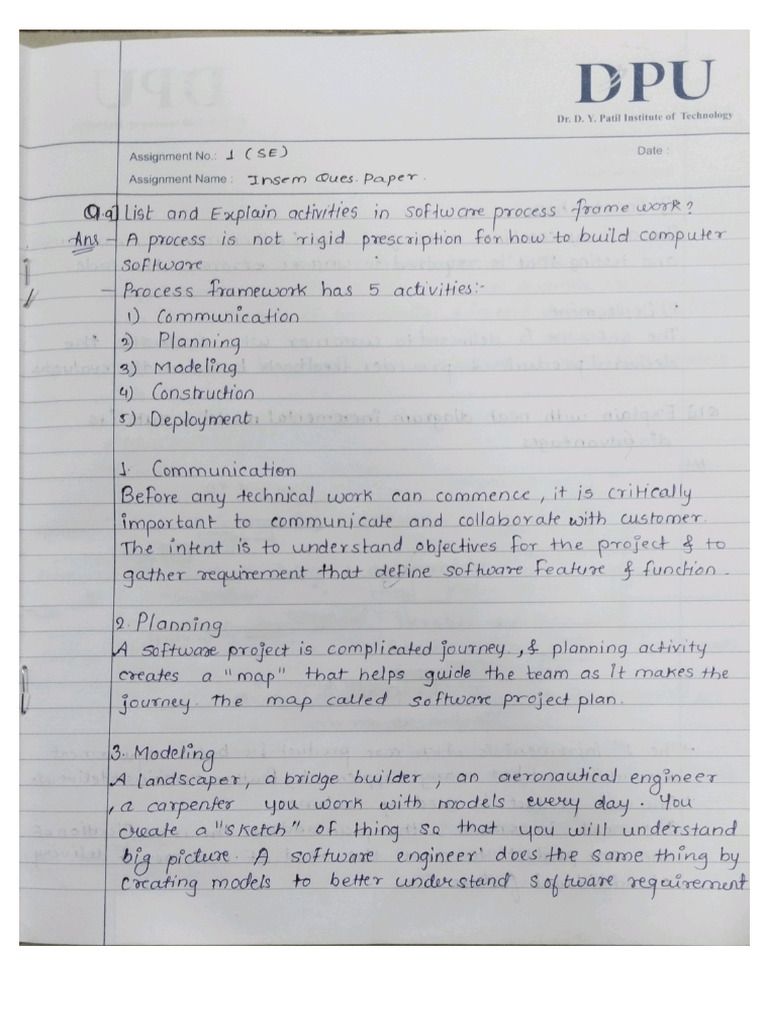 DPU
Dr. D. Y. Patil Institute of Technology
Assignment No.: 1 (SE)
Date :
Assignment Name : Insem Ques. Paper.
Q.a] List and Explain activities in software process frame work?
Ans - A process is not rigid prescription for how to build computer
software
- Process framework has 5 activities:-
1) Communication
2) Planning
3) Modeling
4) Construction
5) Deployment.
1. Communication
Before any technical work can commence, it is critically
important to communicate and collaborate with customer.
The intent is to understand objectives for the project & to
gather requirement that define software feature & function.
2. Planning
A software project is complicated journey, & planning activity
creates a "map" that helps guide the team as It makes the
journey. The map called software project plan.
3. Modeling
A landscaper, a bridge builder, an aeronautical engineer
, a carpenter you work with models every day. You
create a "sketch" of thing so that you will understand
big picture. A software engineer does the same thing by
creating models to better understand software requirement